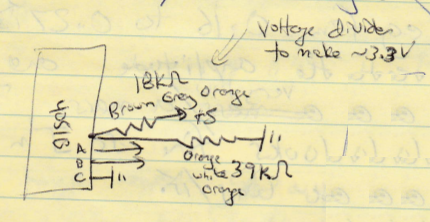 Voltage divider
to make ~3.3V
18KΩ
Brown Grey Orange
+5
A
B
C
Orange
white 39KΩ
Orange